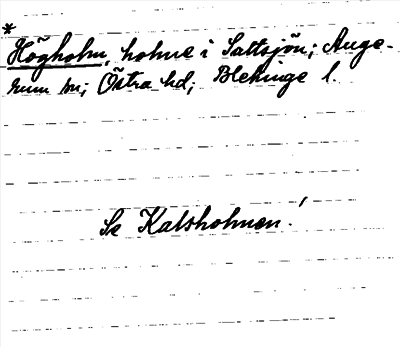 *
Högholm, holme i Saltsjön; Auge-
rum sn; Östra hd; Blekinge l.
Se Kalsholmen!